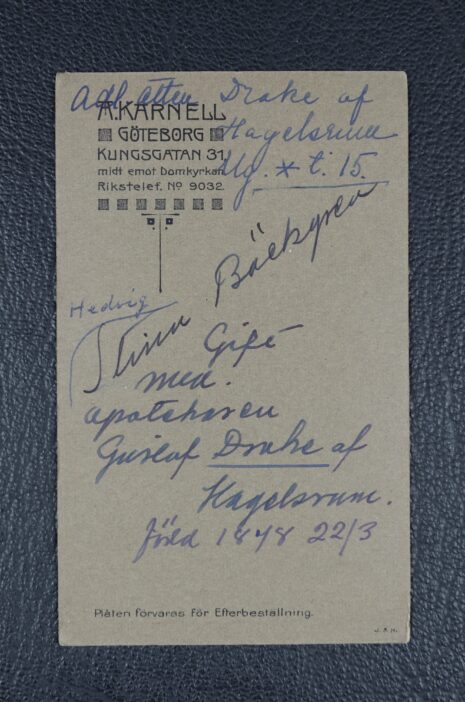 Adl. ätten Drake af
Hagelsrum
Ug. * t. 15.
A. KARNELL
GÖTEBORG
KUNGSGATAN 31,
midt emot Domkyrkan
Rikstelef. No 9032.
Bäckgren
Hedvig
Stina
Gift
med.
apotekaren
Gustaf Drake af
Hagelsrum.
född 1848 22/3
Plåten förvaras för Efterbeställning.
J. A. H.